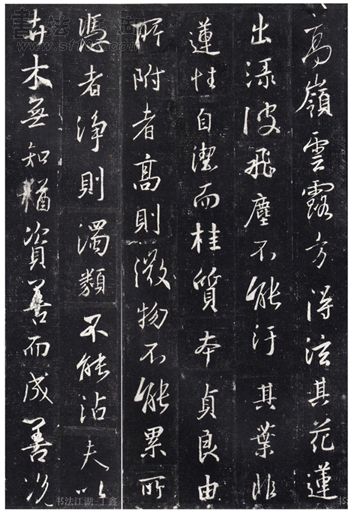 高嶺雲露方得泫其花蓮
出淥波飛塵不能汙其葉非
蓮性自潔而桂質本貞良由
所附者高則微物不能累所
憑者淨則濁類不能沾夫以
卉木無知猶資善而成善況
书法江湖 丁鑫